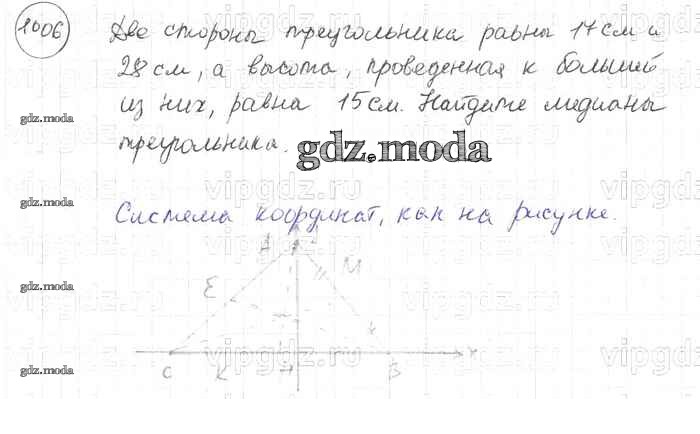 1006
Две стороны треугольника равны 17 см и
28 см, а высота, проведенная к большей
из них, равна 15 см. Найдите медианы
треугольника.
gdz.moda
gdz.moda
gdz.moda
gdz.moda
Система координат, как на рисунке.
A
M
E
C K H B x
vipgdz.ru